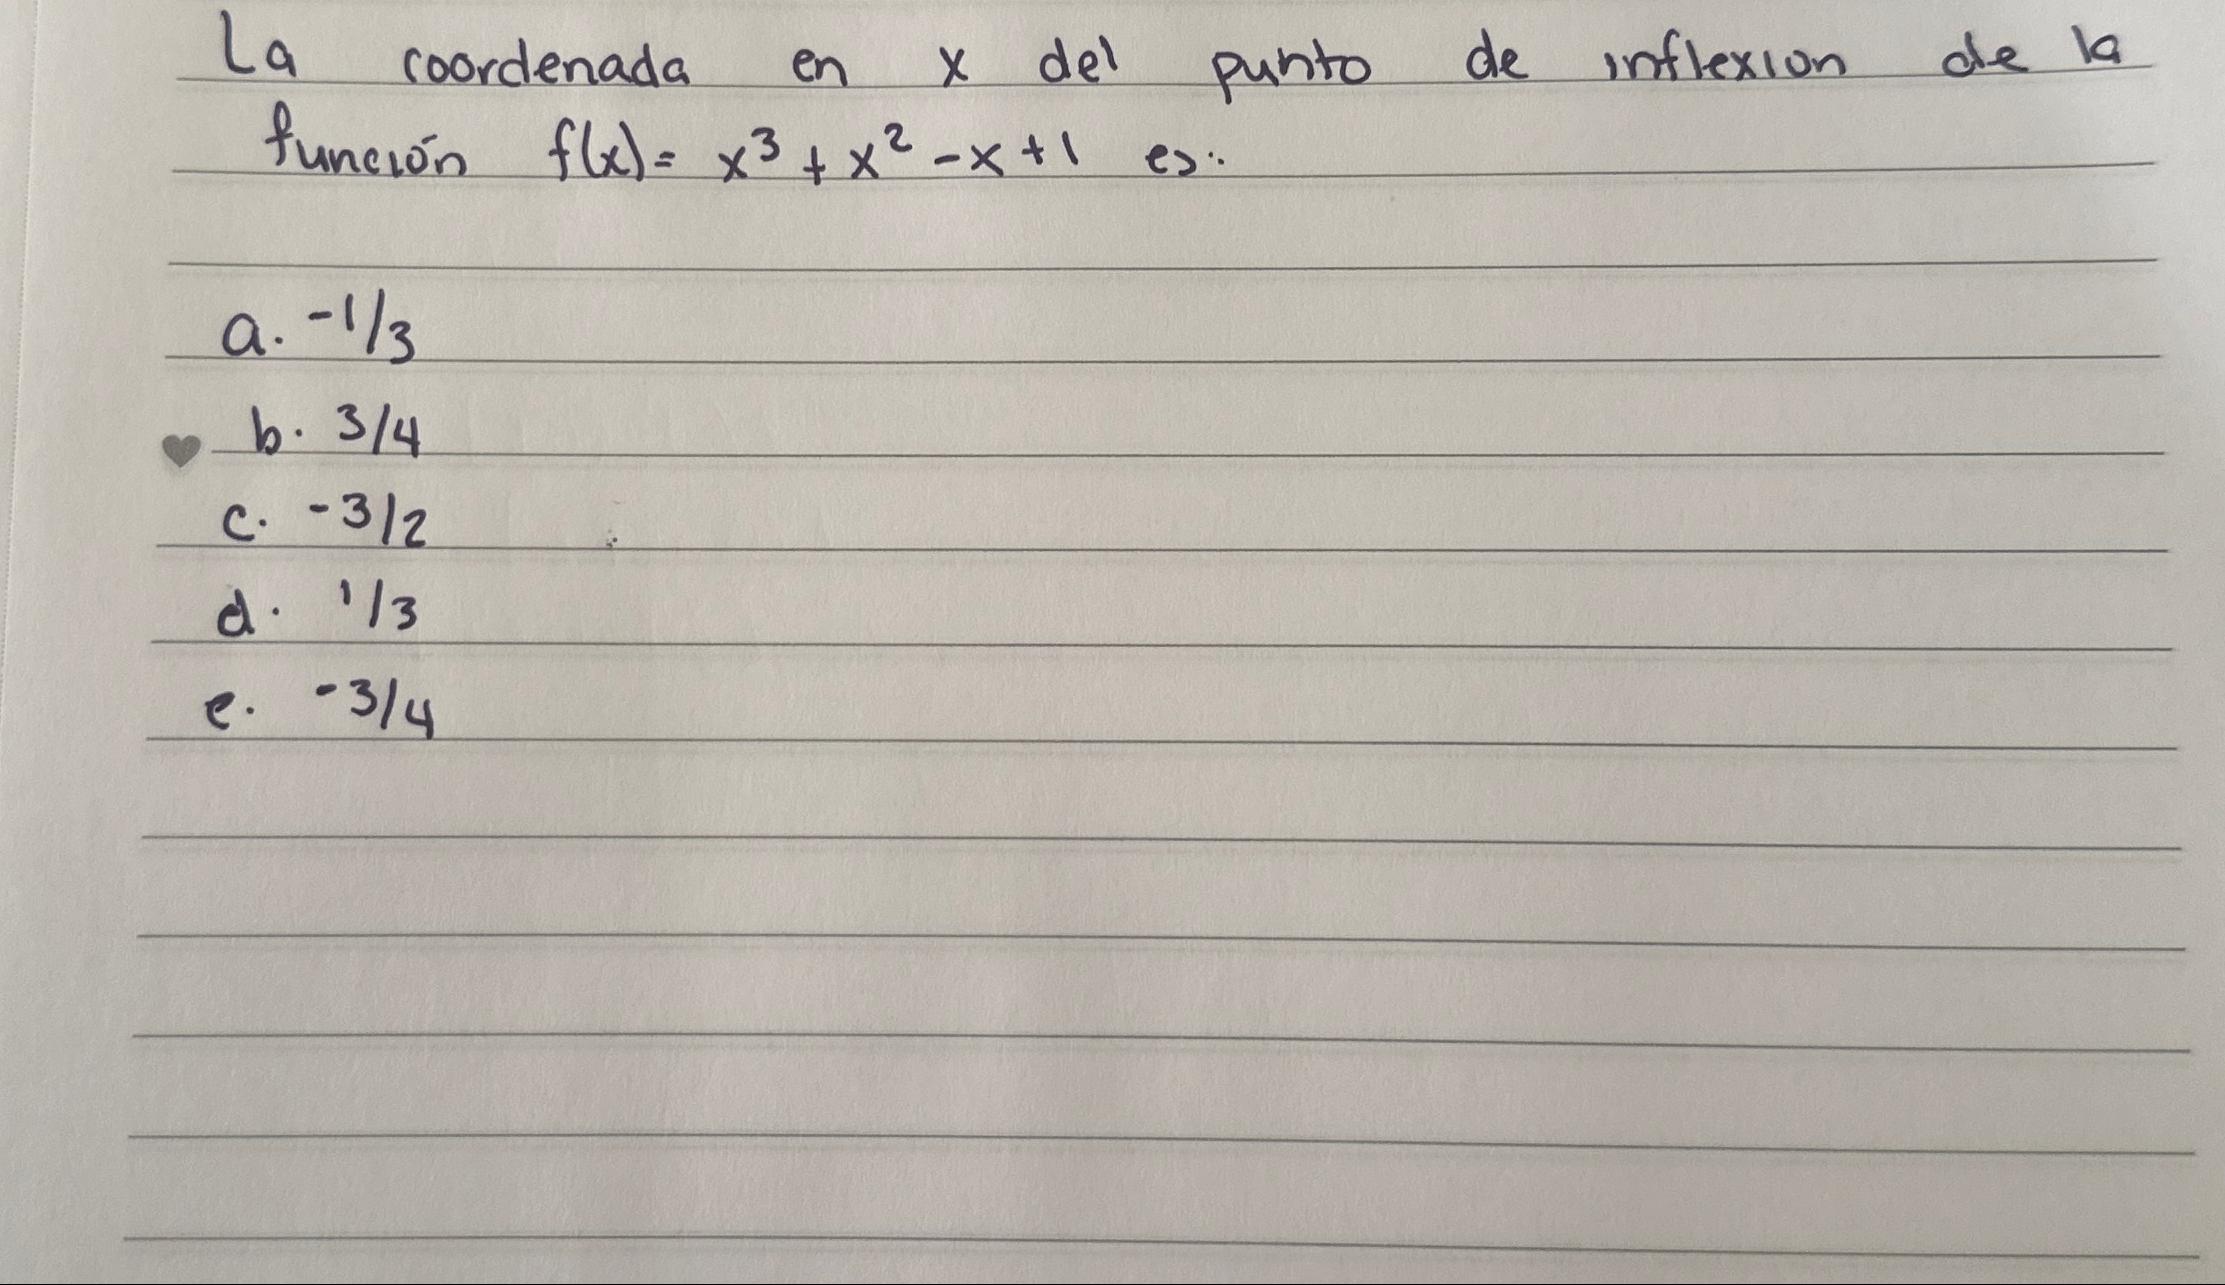 La coordenada en x del punto de inflexion de la
función f(x)= x³ + x² - x + 1 es:
a. -1/3
b. 3/4
c. -3/2
d. 1/3
e. -3/4